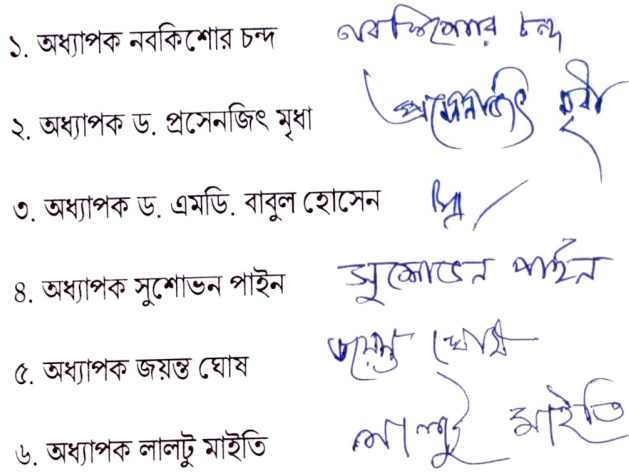 ১. অধ্যাপক নবকিশোর চন্দ নবকিশোর চন্দ
২. অধ্যাপক ড. প্রসেনজিৎ মৃধা প্রসেনজিৎ মৃধা
৩. অধ্যাপক ড. এমডি. বাবুল হোসেন
৪. অধ্যাপক সুশোভন পাইন সুশোভন পাইন
৫. অধ্যাপক জয়ন্ত ঘোষ জয়ন্ত ঘোষ
৬. অধ্যাপক লালটু মাইতি লালটু মাইতি